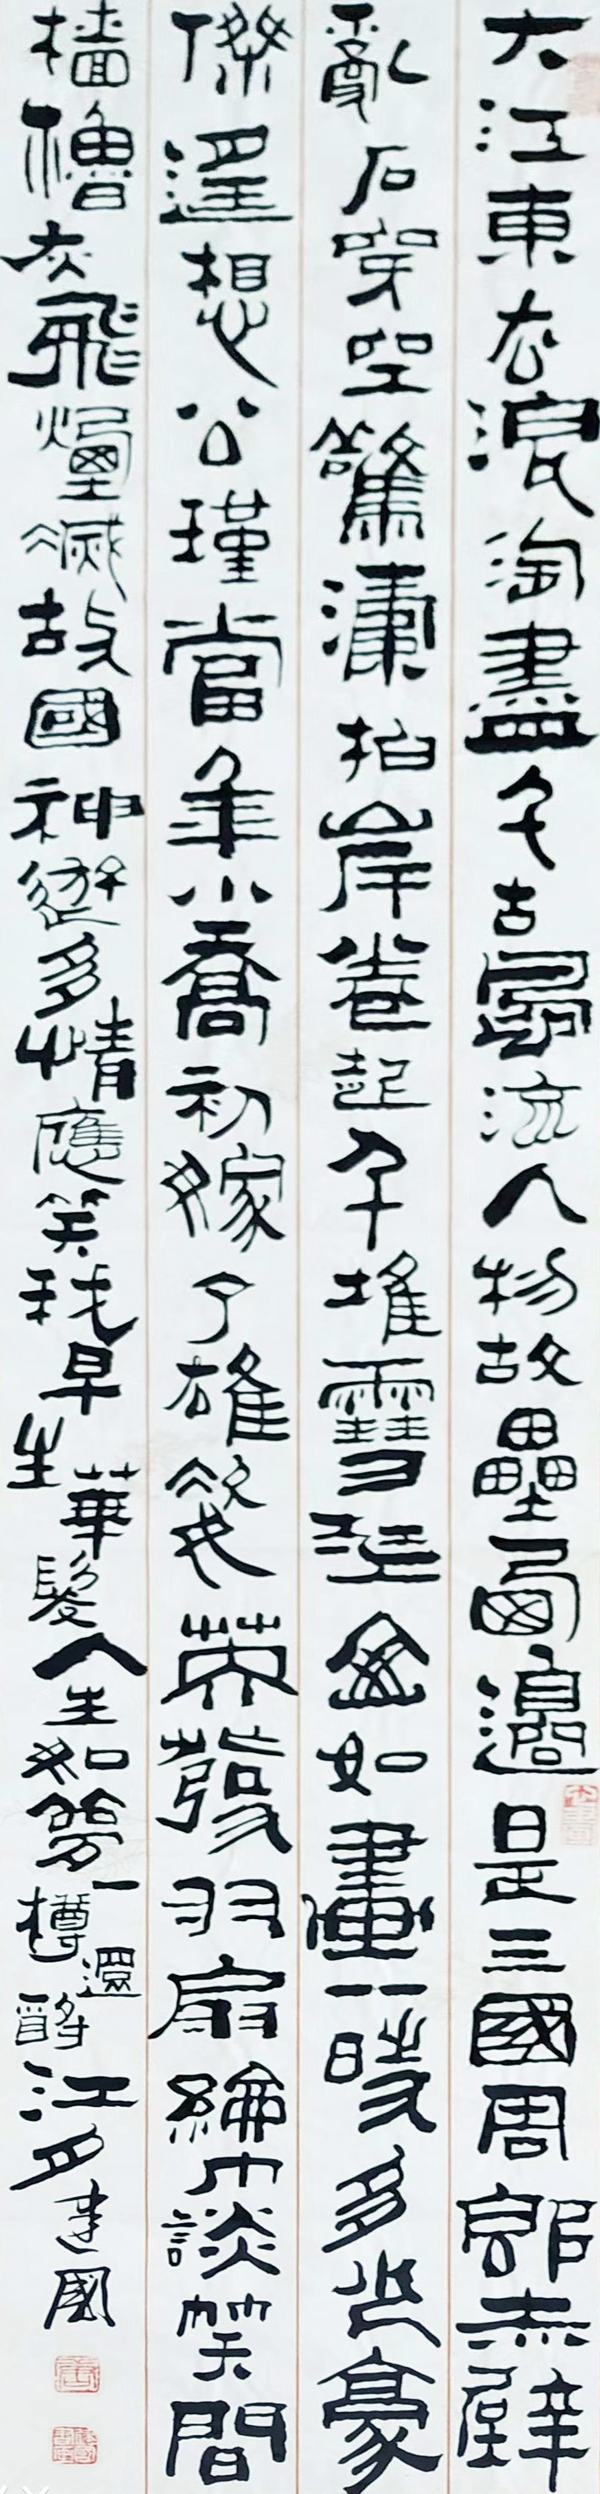 大江東去浪淘盡千古風流人物故壘西邊是三國周郎赤壁
亂石穿空驚濤拍岸卷起千堆雪江山如畫一時多少豪
傑遥想公瑾當年小喬初嫁了雄姿英發羽扇綸巾談笑間
檣櫓灰飛煙滅故國神遊多情應笑我早生華髮人生如夢一樽還酹江月建國